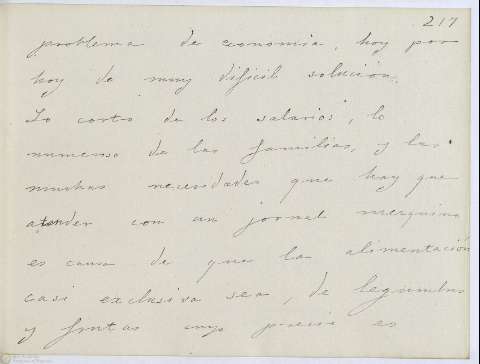 217
problema de economia, hoy por
hoy de muy dificil solución.
Lo corto de los salarios, lo
numeroso de las familias, y las
muchas necesidades que hay que
atender con un jornal mezquino
es causa de que la alimentación
casi exclusiva sea, de legumbres
y frutas cuyo precio es